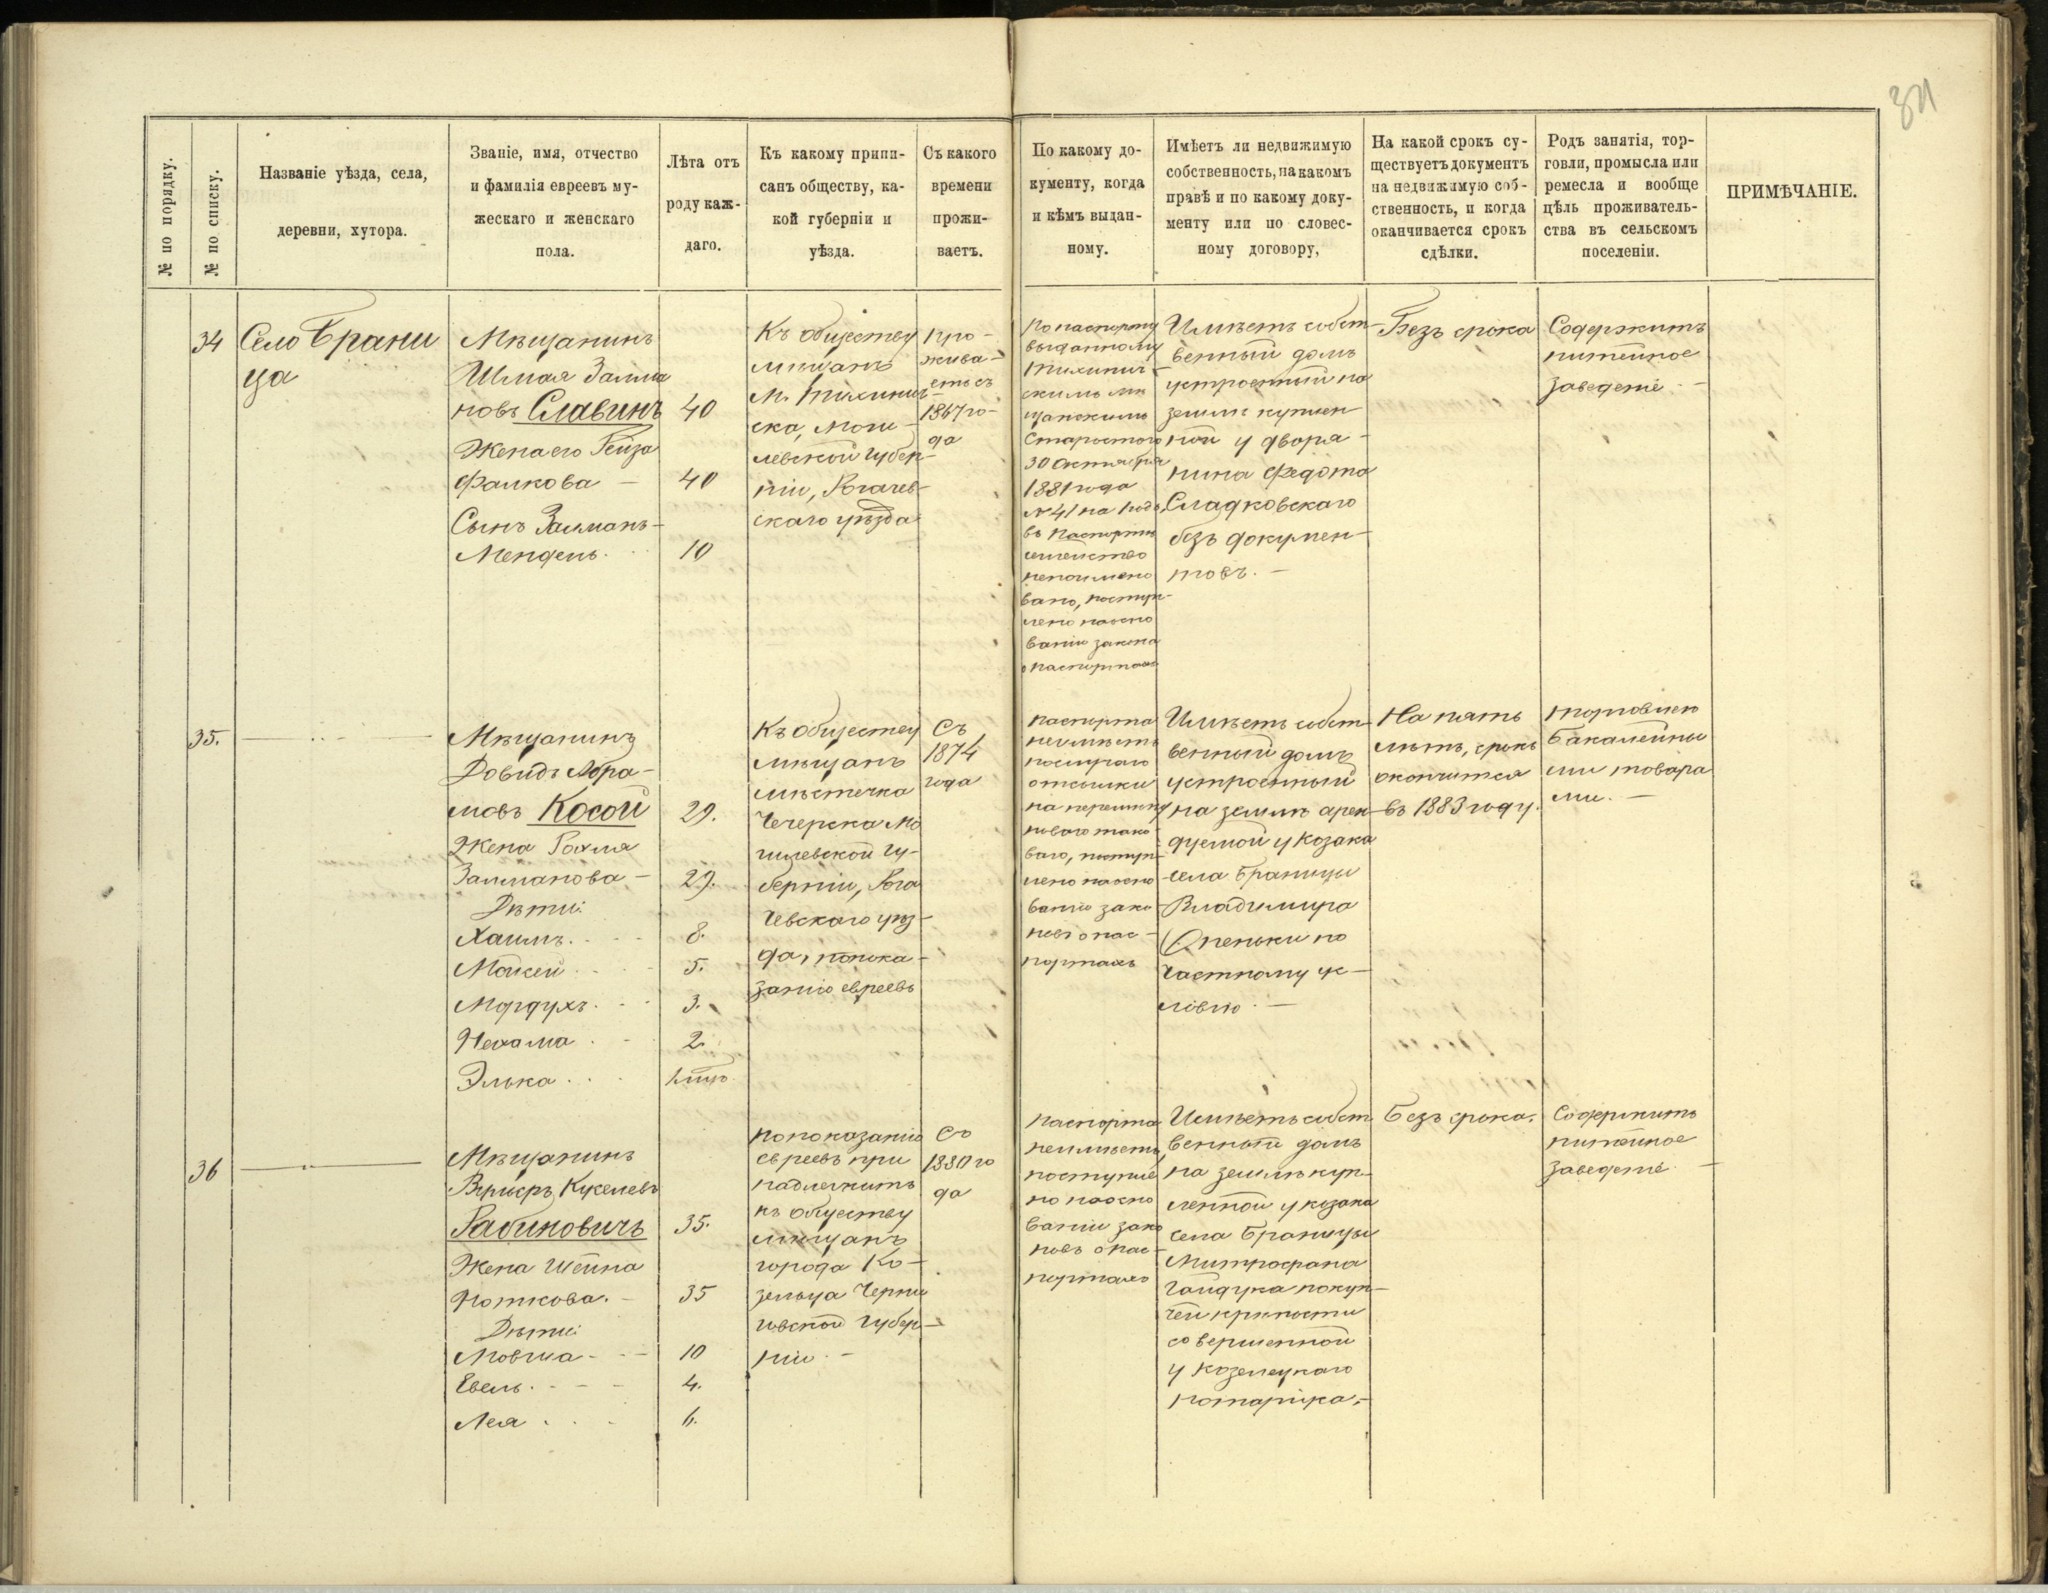 31
№ по порядку.
№ по списку.
Названіе уѣзда, села,
деревни, хутора.
Званіе, имя, отчество
и фамилія евреевъ му-
жескаго и женскаго
пола.
Лѣта отъ
роду каж-
даго.
Къ какому припи-
санъ обществу, ка-
кой губерніи и
уѣзда.
Съ какого
времени
прожи-
ваетъ.
По какому до-
кументу, когда
и кѣмъ выдан-
ному.
Имѣетъ ли недвижимую
собственность, на какомъ
правѣ и по какому доку-
менту или по словес-
ному договору,
На какой срокъ су-
ществуетъ документъ
на недвижимую соб-
ственность, и когда
оканчивается срокъ
сдѣлки.
Родъ занятія, тор-
говли, промысла или
ремесла и вообще
цѣль проживатель-
ства въ сельскомъ
поселеніи.
ПРИМѢЧАНІЕ.
34
Село Брани
ца
Мѣщанинъ
Шмая Залма
новъ Славинъ 40
Жена его Гейза
Фалкова — 40
Сынъ Залманъ-
Мендель. 10
Къ обществу
мѣщанъ
м. Тихинич-
ска, Моги-
левской губер-
ніи, Рогачев-
скаго уѣзда
Про-
жива-
етъ съ
1867 го-
да
По паспорту
выданному
Тихинич-
скимъ мѣ
щанскимъ
Старостою
30 Октября
1881 года
№ 41 на годъ,
въ паспортѣ
семейство
непоимено
вано, поступ-
лено на осно
ваніи закона
о паспортахъ
Имѣетъ собст-
венный домъ
устроенный на
землѣ куплен
ной у дворя-
нина Федота
Сладковскаго
безъ докумен-
товъ. —
Безъ срока
Содержитъ
питейное
заведеніе —
35.
Мѣщанинъ
Довидъ Абра-
мовъ Косой 29.
Жена Рахля
Залманова — 29.
Дѣти:
Хаимъ. 8.
Мойсей 5.
Мордухъ. 3.
Нехама 2.
Элька
Къ обществу
мѣщанъ
мѣстечка
Чечерска Мо
гилевской гу-
берніи, Рога
чевскаго уѣз-
да, по пока-
занію евреевъ
Съ
1874
года
Паспорта
неимѣетъ
по случаю
отсылки
на перемѣну
новаго тако-
ваго, поступ-
лено на осно
ваніи зако-
новъ о пас-
портахъ
Имѣетъ собст-
венный домъ
устроенный
на землѣ арен-
дуемой у козака
села Браницы
Владимира
Опеньки по
частному ус-
ловію. —
На пять
лѣтъ, срокъ
окончится
въ 1883 году.
Торговлею
бакалейны
ми товара
ми. —
36
Мѣщанинъ
Рабиновичъ 35.
Жена Шейна
35
Дѣти:
Мовша — 10
Евель. — 4.
Лея 6.
По показанію
евреевъ при
надлежитъ
къ обществу
мѣщанъ
города Ко-
зельца Черни
говской губер-
ніи. —
Съ
1880 го
да
Паспорта
неимѣетъ,
поступле
но на осно
ваніи зако
новъ о пас-
портахъ
Имѣетъ собст
венный домъ
на землѣ куп-
ленной у козака
села Браницы
Митрофана
Гайдука по куп-
чей крѣпости
совершенной
у Козелецкаго
нотаріуса. —
Безъ срока.
Содержитъ
питейное
заведеніе. —